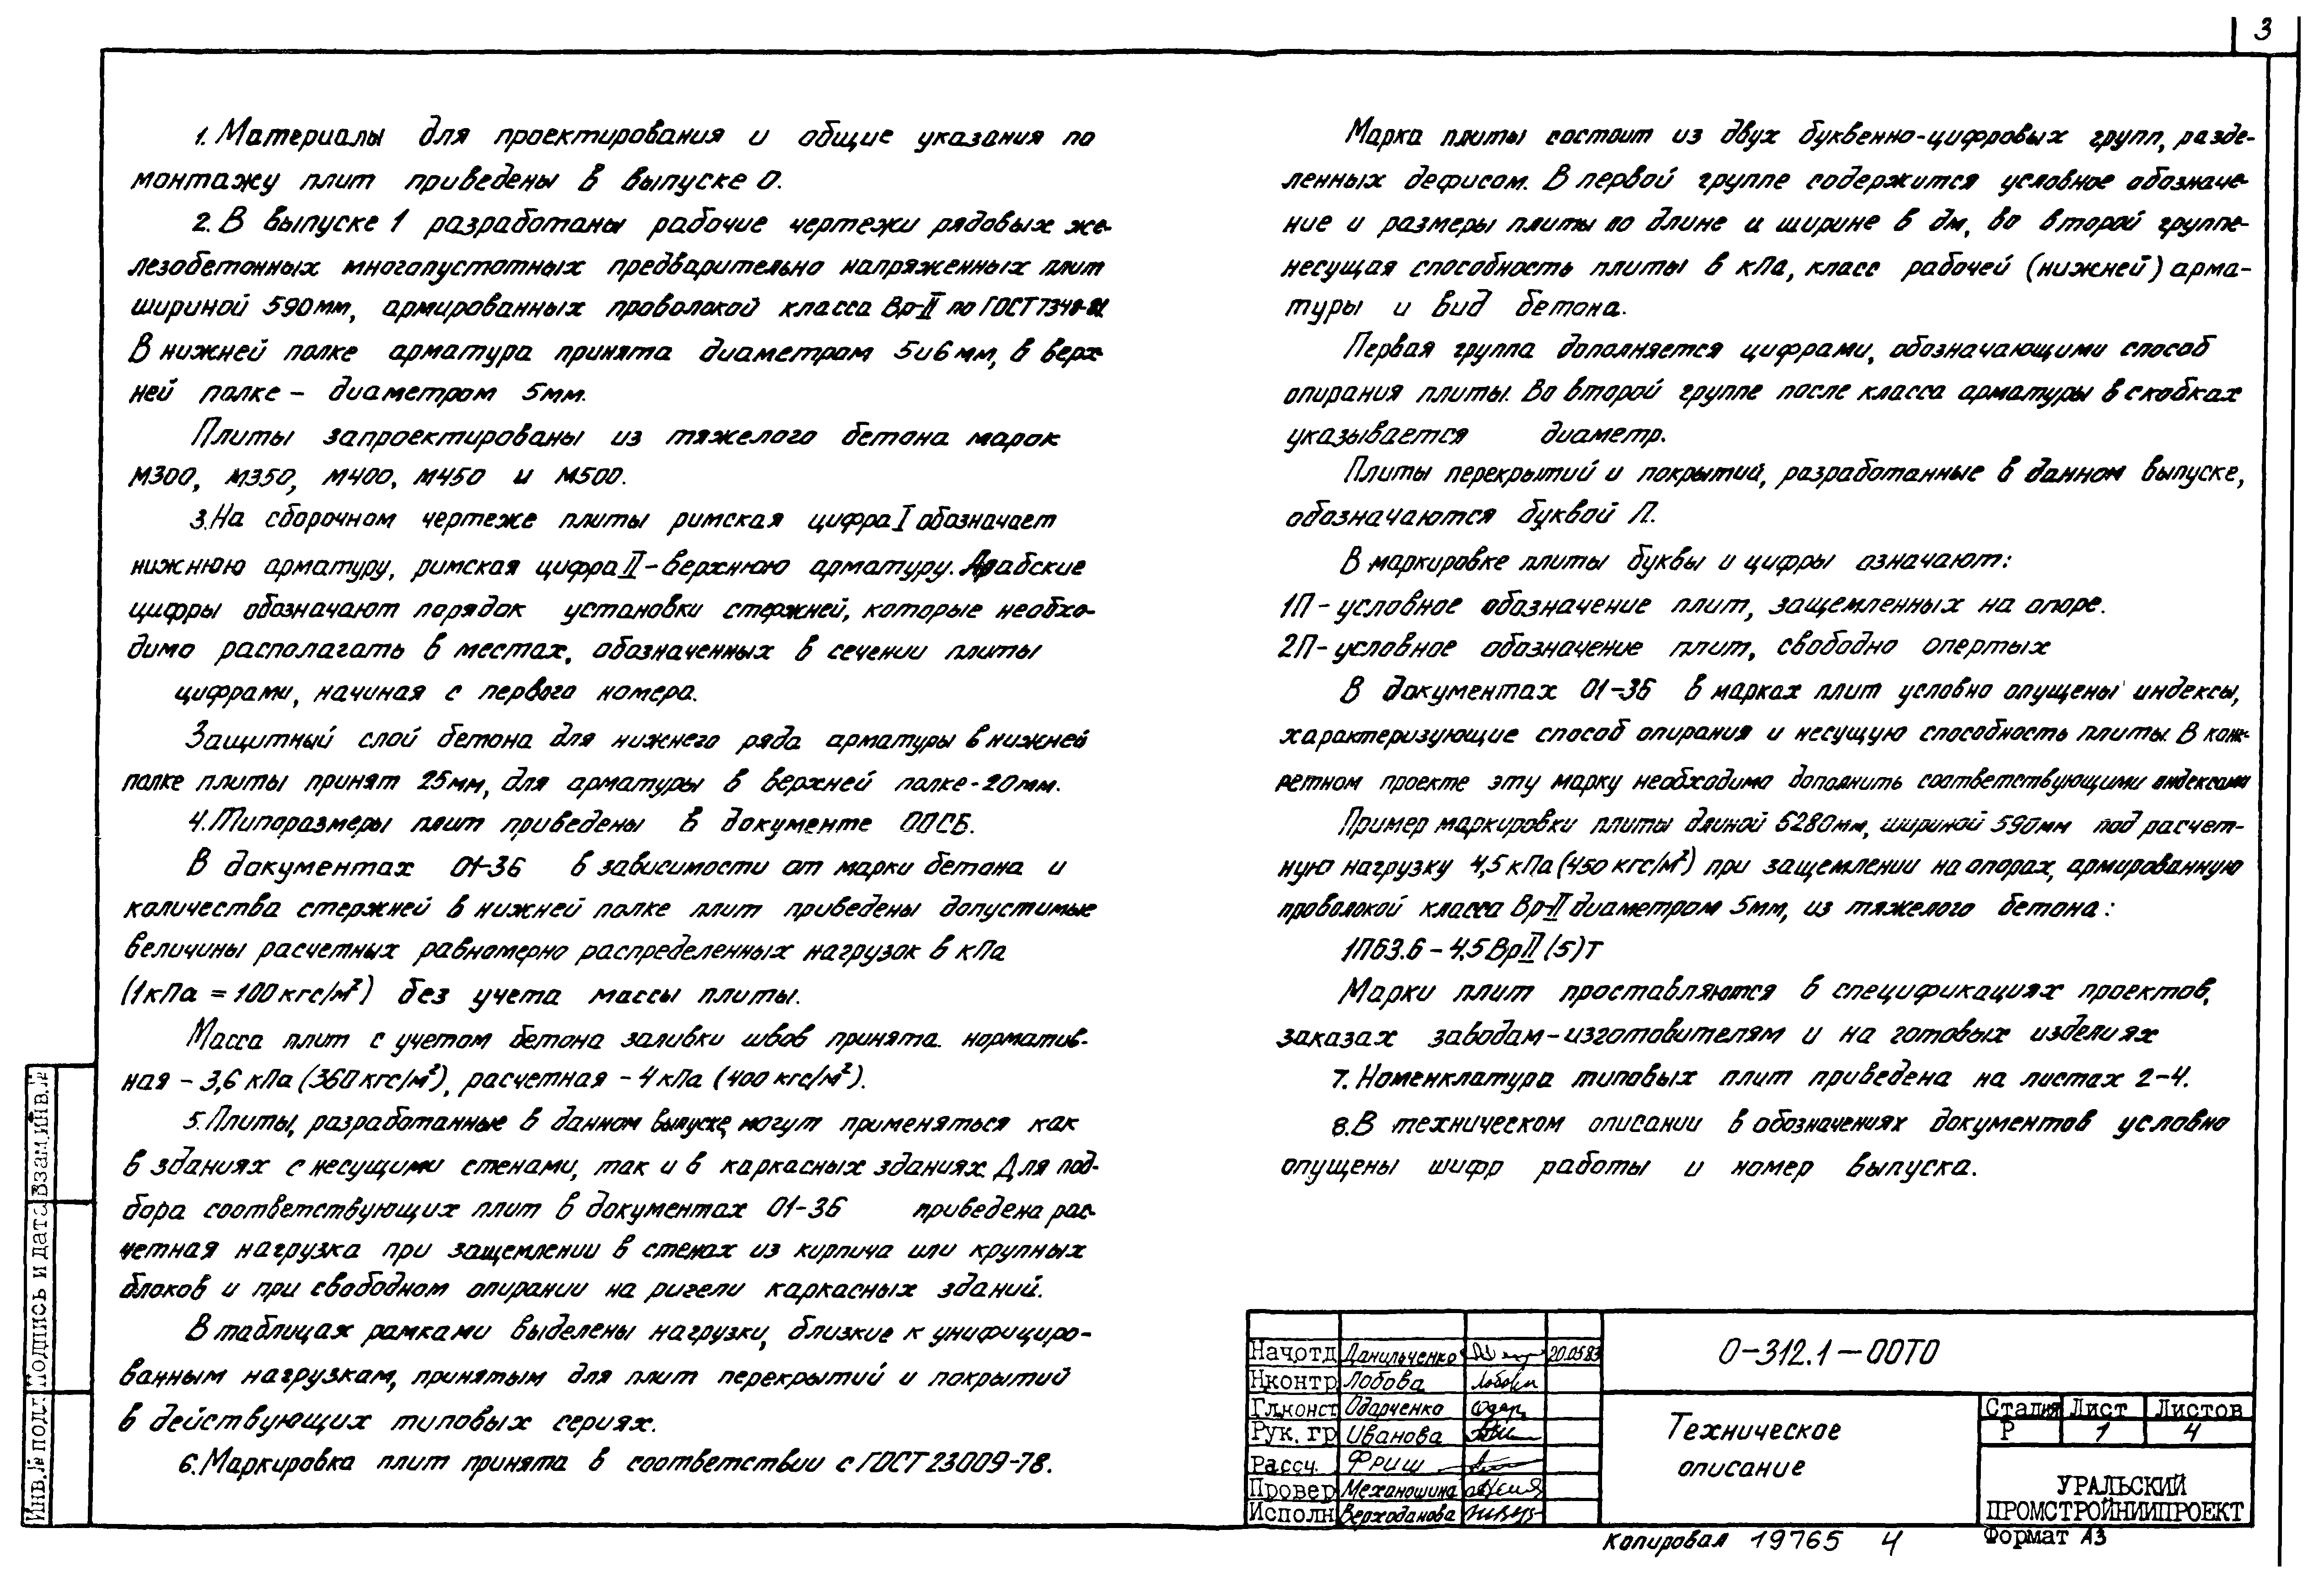 3
1. Материалы для проектирования и общие указания по
монтажу плит приведены в выпуске 0.
2. В выпуске 1 разработаны рабочие чертежи рядовых же-
лезобетонных многопустотных предварительно напряженных плит
шириной 590мм, армированных проволокой класса Вр-II по ГОСТ 7348-81.
В нижней полке арматура принята диаметром 5и6мм, в верх-
ней полке – диаметром 5мм.
Плиты запроектированы из тяжелого бетона марок
М300, М350, М400, М450 и М500.
3. На сборочном чертеже плиты римская цифра I обозначает
нижнюю арматуру, римская цифра II – верхнюю арматуру. Арабские
цифры обозначают порядок установки стержней, которые необхо-
димо располагать в местах, обозначенных в сечении плиты
цифрами, начиная с первого номера.
Защитный слой бетона для нижнего ряда арматуры в нижней
полке плиты принят 25мм, для арматуры в верхней полке - 20мм.
4. Типоразмеры плит приведены в документе 00СБ.
В документах 01-36 в зависимости от марки бетона и
количества стержней в нижней полке плит приведены допустимые
величины расчетных равномерно распределенных нагрузок в кПа
(1кПа = 100кгс/м²) без учета массы плиты.
Масса плит с учетом бетона заливки швов принята: норматив-
ная – 3,6 кПа (360кгс/м²), расчетная – 4кПа (400 кгс/м²).
5. Плиты, разработанные в данном выпуске, могут применяться как
в зданиях с несущими стенами, так и в каркасных зданиях. Для под-
бора соответствующих плит в документах 01-36 приведена рас-
четная нагрузка при защемлении в стенах из кирпича или крупных
блоков и при свободном опирании на ригели каркасных зданий.
В таблицах рамками выделены нагрузки, близкие к унифициро-
ванным нагрузкам, принятым для плит перекрытий и покрытий
в действующих типовых сериях.
6. Маркировка плит принята в соответствии с ГОСТ 23009-78.
Марка плиты состоит из двух буквенно-цифровых групп, разде-
ленных дефисом. В первой группе содержится условное обозначе-
ние и размеры плиты по длине и ширине в дм, во второй группе-
несущая способность плиты в кПа, класс рабочей (нижней) арма-
туры и вид бетона.
Первая группа дополняется цифрами, обозначающими способ
опирания плиты. Во второй группе после класса арматуры в скобках
указывается диаметр.
Плиты перекрытий и покрытий, разработанные в данном выпуске,
обозначаются буквой П.
В маркировке плиты буквы и цифры означают:
1П - условное обозначение плит, защемленных на опоре.
2П - условное обозначение плит, свободно опертых
В документах 01-36 в марках плит условно опущены индексы,
характеризующие способ опирания и несущую способность плиты. В конк-
ретном проекте эту марку необходимо дополнить соответствующими индексами
Пример маркировки плиты длиной 6280мм, шириной 590мм под расчет-
ную нагрузку 4,5кПа (450 кгс/м²) при защемлении на опорах, армированную
проволокой класса Вр-II диаметром 5мм, из тяжелого бетона:
1П63.6 – 4.5ВрII (5)Т
Марки плит проставляются в спецификациях проектов,
заказах заводам-изготовителям и на готовых изделиях
7. Номенклатура типовых плит приведена на листах 2-4.
8. В техническом описании в обозначениях документов условно
опущены шифр работы и номер выпуска.
Инв.№ подл. Подпись и дата Взам.инв.№
Нач.отд Данильченко 20.05.83
Н.контр Лобова
Гл.конст Одарченко
Рук. гр Иванова
Рассч. Фриш
Провер Механошина
Исполн Верходанова
0-312.1-00ТО
Техническое
описание
Стадия Лист Листов
Р 1 4
УРАЛЬСКИЙ
ПРОМСТРОЙНИИПРОЕКТ
Копировал 19765 4 Формат А3